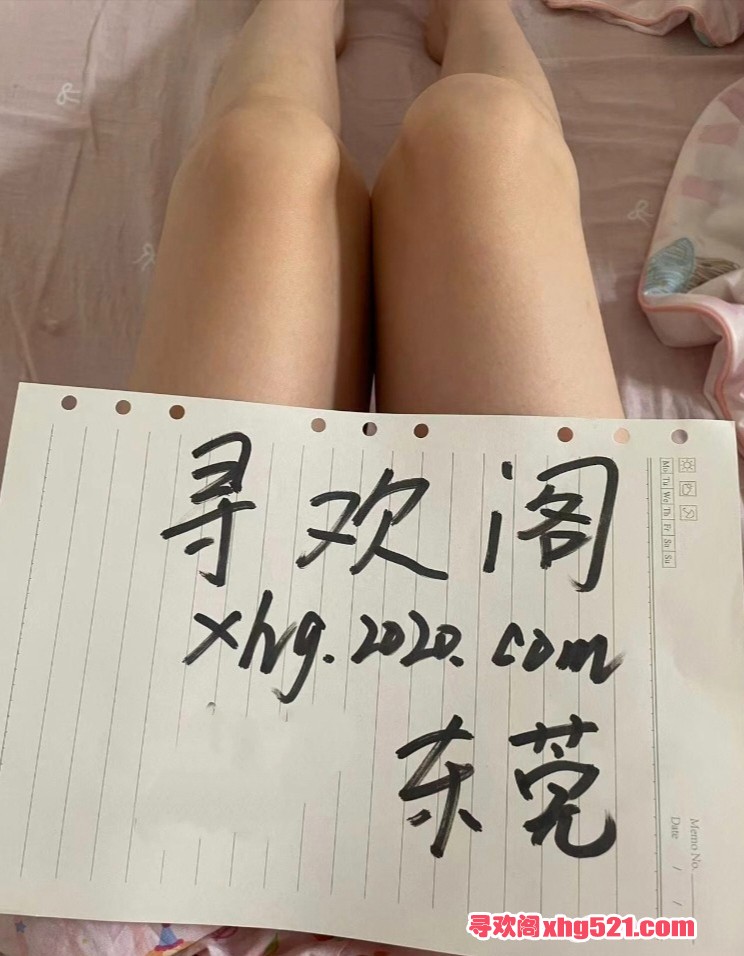 寻欢阁
xhg.2020.com
东莞
Mo Tu We Th Fr Sa Su
Memo No.
Date / /
寻欢阁xhg521.com